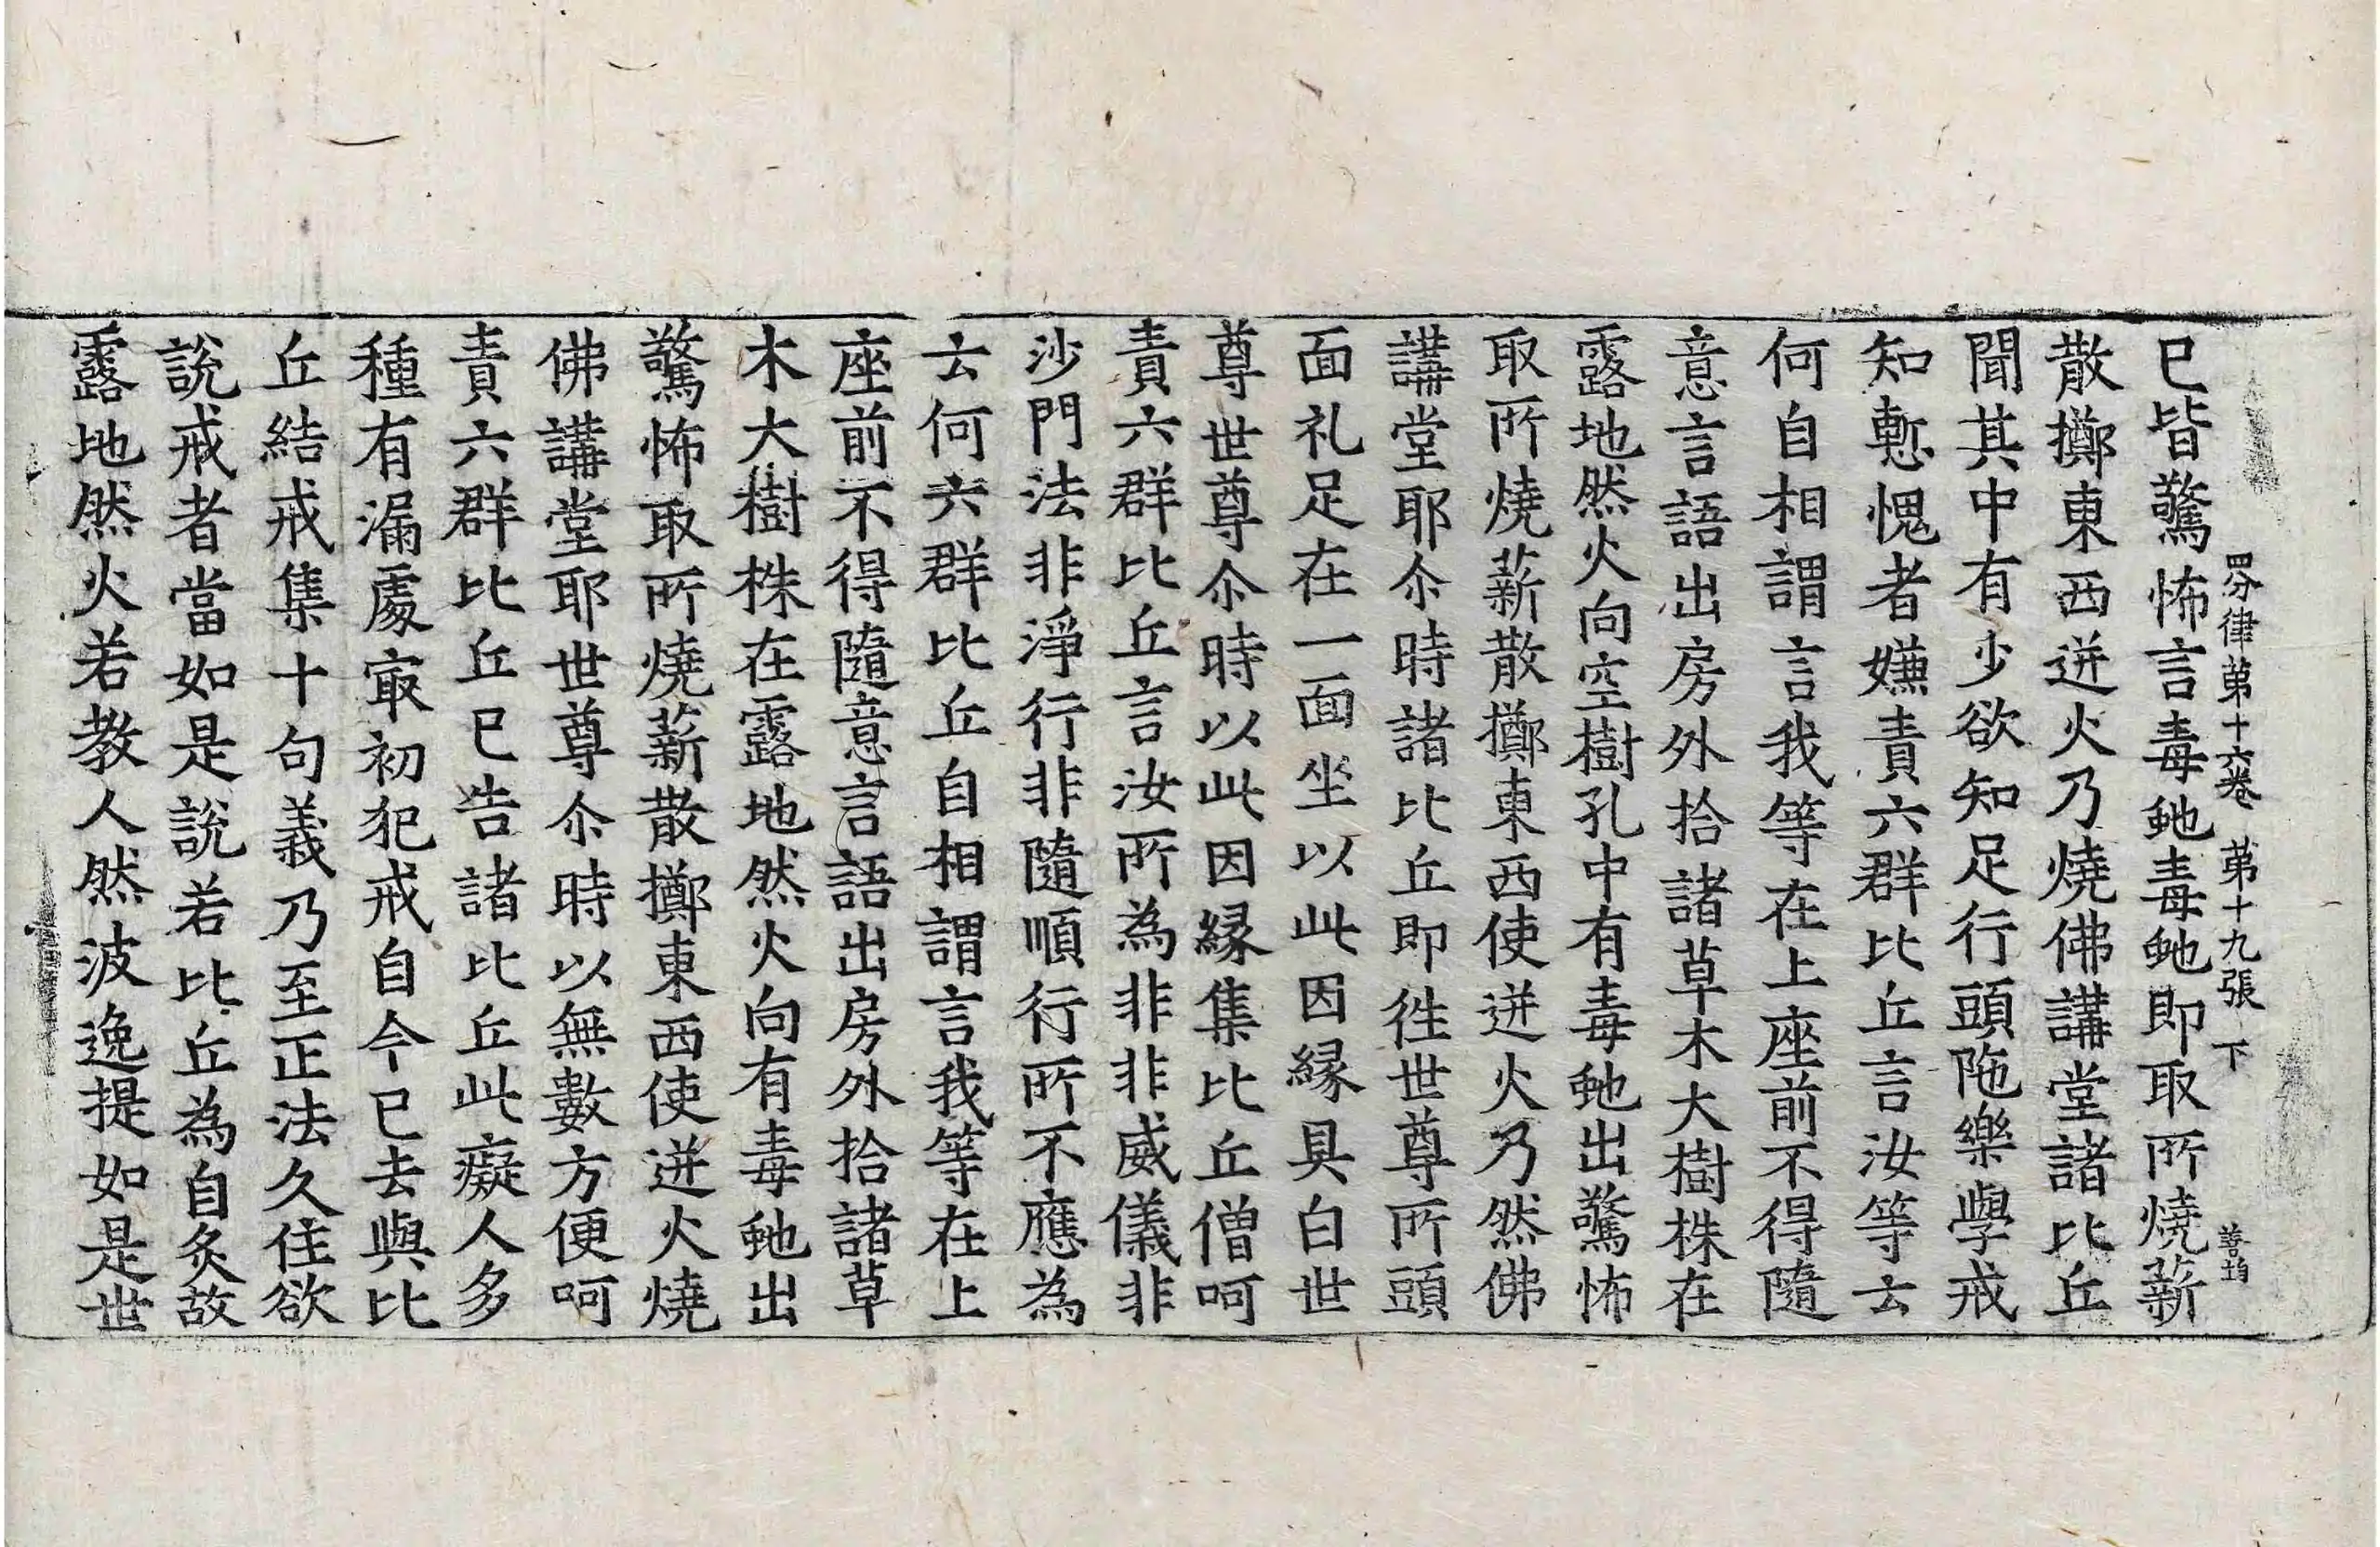 四分律苐十六卷 苐十九張 下
已皆驚怖言毒虵毒虵即取所燒薪
散擲東西迸火乃燒佛講堂諸比丘
聞其中有少欲知足行頭陁樂學戒
知慙愧者嫌責六群比丘言汝等云
何自相謂言我等在上座前不得隨
意言語出房外拾諸草木大樹株在
露地然火向空樹孔中有毒虵出驚怖
取所燒薪散擲東西使迸火乃然佛
講堂耶尒時諸比丘即徃世尊所頭
面礼足在一面坐以此因縁具白世
尊世尊尒時以此因縁集比丘僧呵
責六群比丘言汝所為非非威儀非
沙門法非淨行非隨順行所不應為
云何六群比丘自相謂言我等在上
座前不得隨意言語出房外拾諸草
木大樹株在露地然火向有毒虵出
驚怖取所燒薪散擲東西使迸火燒
佛講堂耶世尊尒時以無數方便呵
責六群比丘已告諸比丘此癡人多
種有漏處冣初犯戒自今已去與比
丘結戒集十句義乃至正法久住欲
說戒者當如是說若比丘為自炙故
露地然火若教人然波逸提如是世